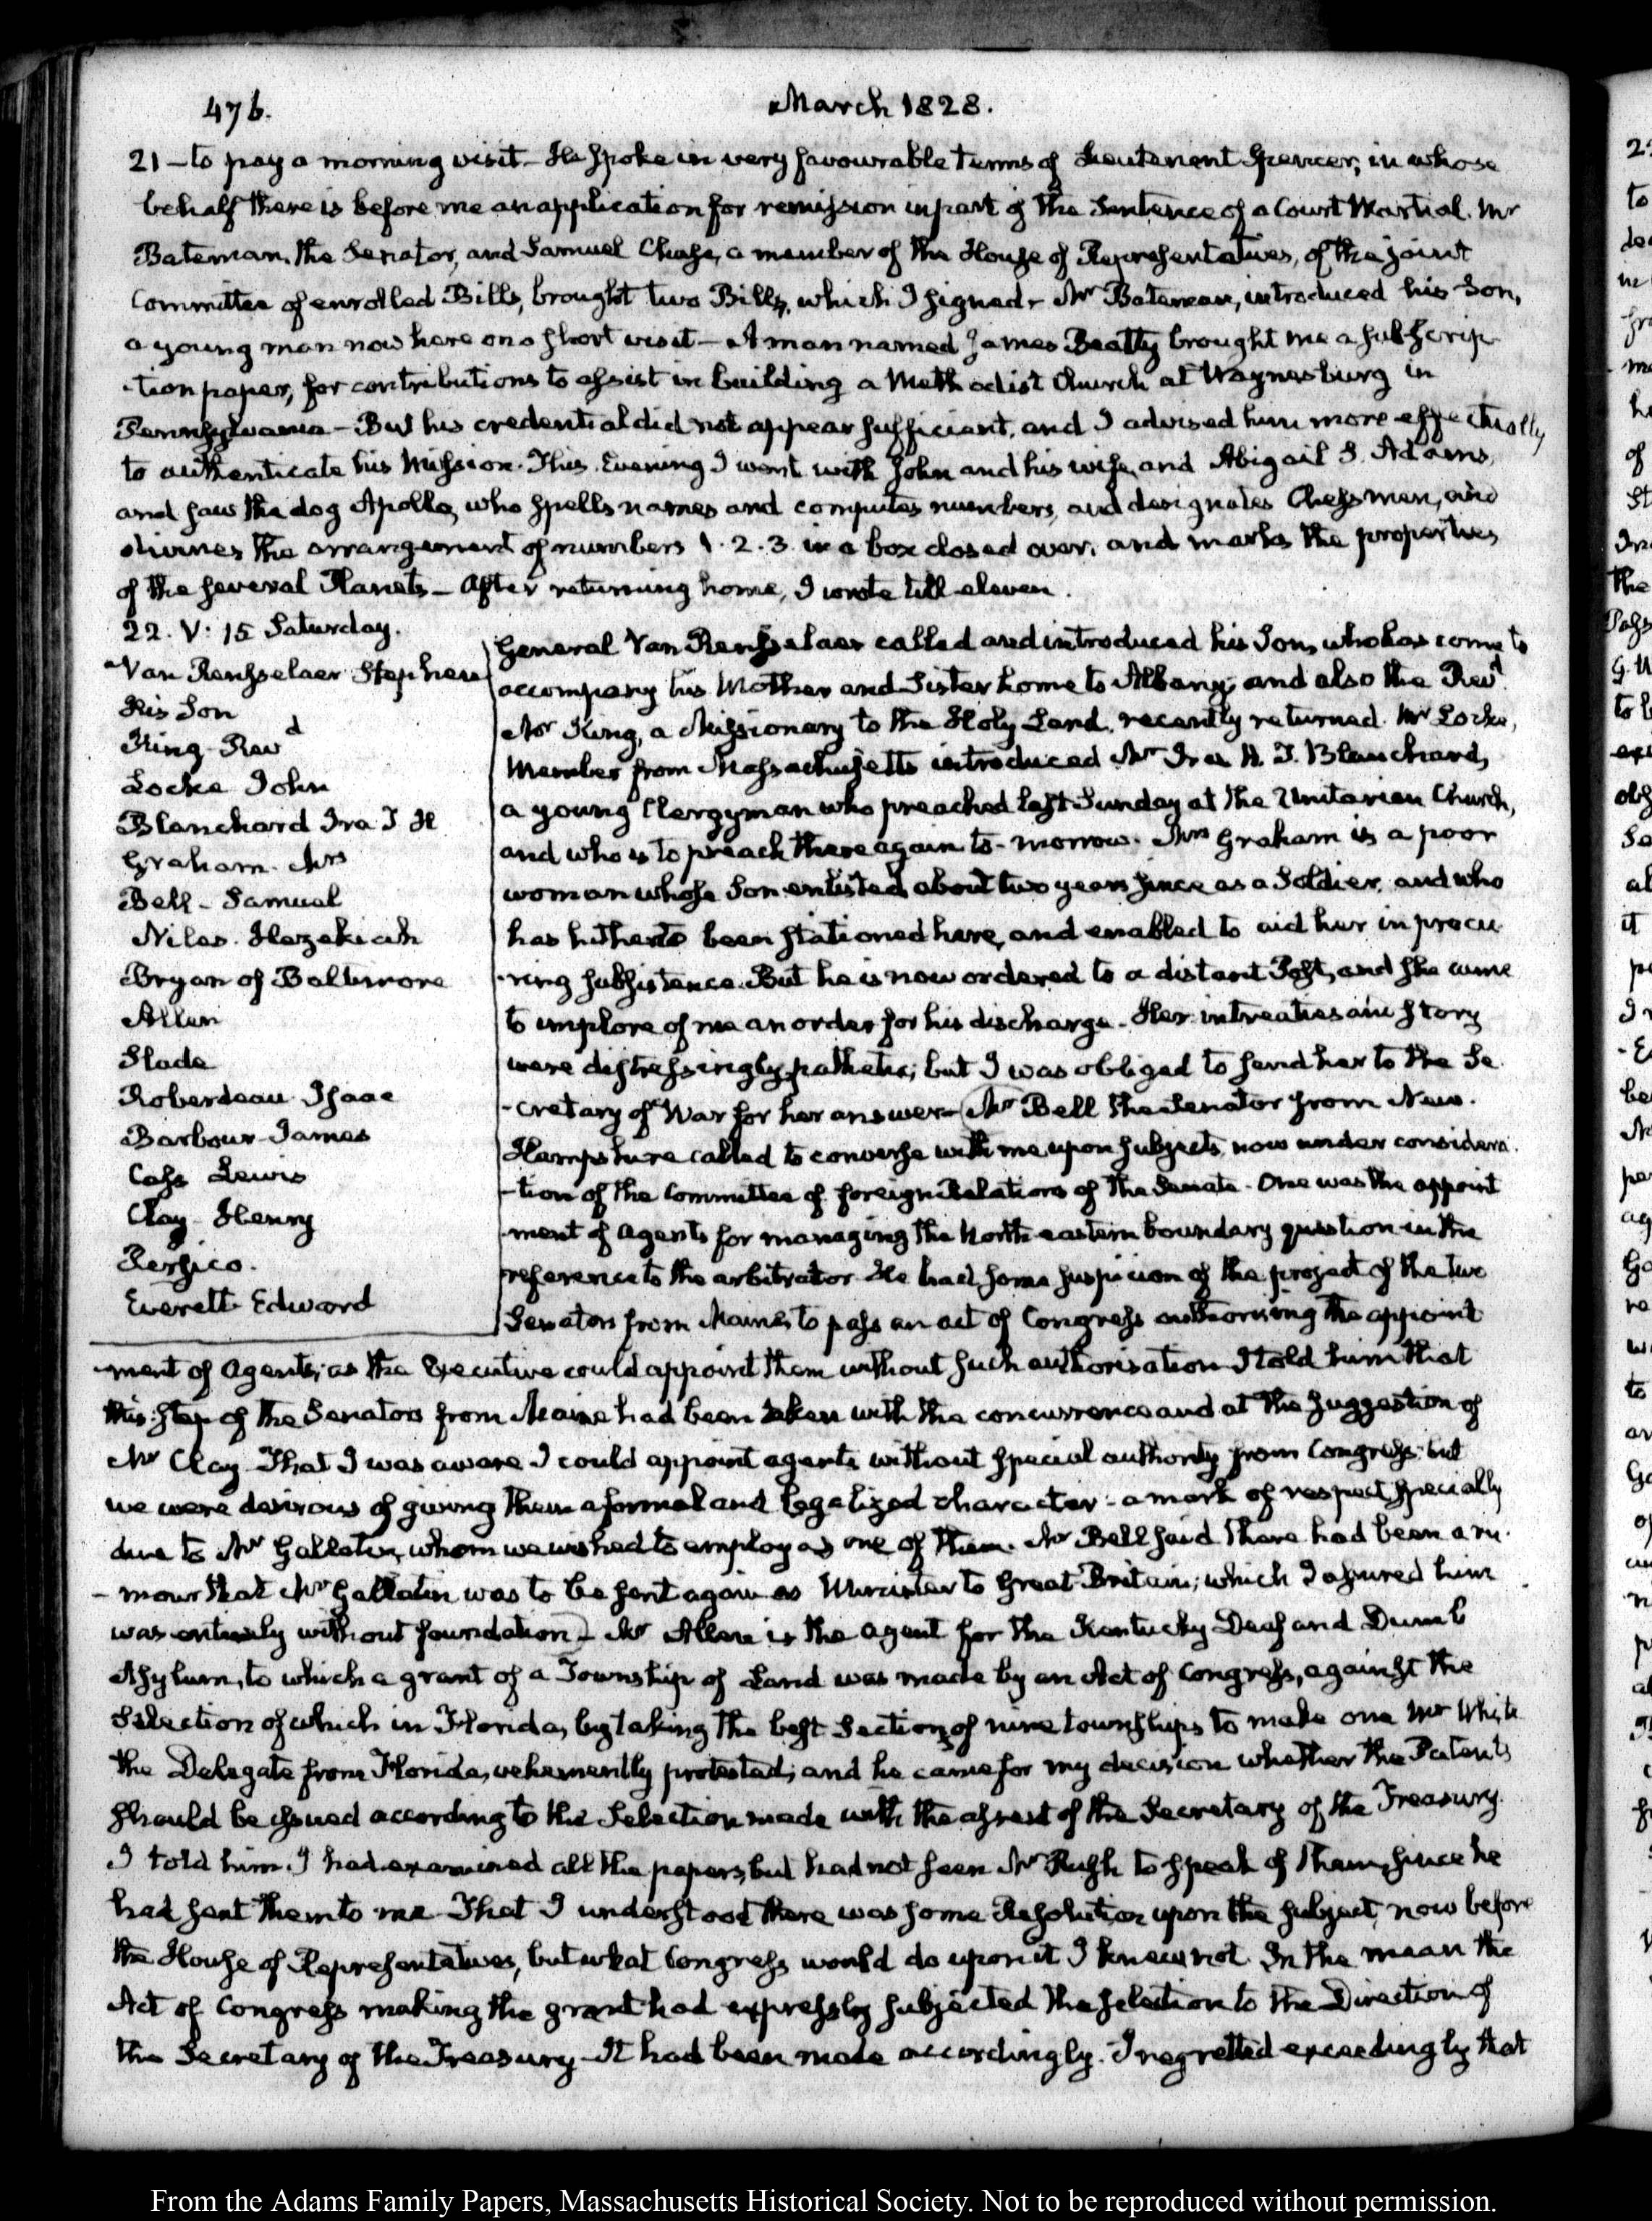 476.
March 1828.
21 – to pay a morning visit – He spoke in very favourable terms of Lieutenant Spencer, in whose
behalf there is before me an application for remission in part of the Sentence of a Court Martial. Mr
Bateman, the Senator, and Samuel Chase, a member of the House of Representatives, of the joint
Committee of enrolled Bills, brought two Bills, which I signed – Mr Bateman, introduced his Son,
a young man now here on a short visit – A man named James Beatty brought me a subscrip-
-tion paper, for contributions to assist in building a Methodist Church at Waynesburg in
Pennsylvania – But his credential did not appear sufficient, and I advised him more effectually
to authenticate his Mission. This Evening I went with John and his wife, and Abigail S. Adams,
and saw the dog Apollo, who spells names and computes numbers, and designates Chessmen, and
divines the arrangement of numbers 1. 2. 3. in a box closed over, and marks the properties
of the several Planets – After returning home, I wrote till eleven.
22. V: 15 Saturday.
Van Rensselaer Stephen
His Son
King Revd
Locke John
Blanchard Ira T H
Graham. Mrs
Bell – Samuel
Niles. Hezekiah
Bryan of Baltimore
Allen
Slade
Roberdeau Isaac
Barbour James
Cass Lewis
Clay Henry
Persico.
Everett Edward
General Van Rensselaer called and introduced his Son, who has come to
accompany his Mother and Sister home to Albany; and also the Revd
Mr King, a Missionary to the Holy Land, recently returned. Mr Locke,
Member from Massachusetts introduced Mr Ira H. T. Blanchard,
a young Clergyman who preached last Sunday at the Unitarian Church,
and who is to preach there again to-morrow. Mrs Graham is a poor
woman whose Son enlisted about two years since as a Soldier, and who
has hitherto been stationed here, and enabled to aid her in procu-
-ring subsistence. But he is now ordered to a distant Post, and she came
to implore of me an order for his discharge. Her intreaties and story
were distressingly pathetic; but I was obliged to send her to the Se-
-cretary of War for her answer – Mr Bell the Senator from New.
Hampshire called to converse with me upon subjects, now under considera-
-tion of the Committee of foreign Relations of the Senate. One was the appoint
-ment of Agents for managing the North-eastern boundary question in the
reference to the arbitrator. He had some suspicion of the project of the two
Senators from Maine, to pass an act of Congress authorising the appoint
-ment of Agents; as the Executive could appoint them without such authorisation. I told him that
this step of the Senators from Maine had been taken with the concurrence and at the suggestion of
Mr Clay. That I was aware I could appoint agents without special authority from Congress; but
we were desirous of giving them a formal and legalized character – a mark of respect specially
due to Mr Gallatin, whom we wished to employ as one of them. Mr Bell said there had been a ru-
-mour that Mr Gallatin was to be sent again as Minister to Great-Britain; which I assured him
was entirely without foundation – Mr Allen is the agent for the Kentucky Deaf and Dumb
Asylum, to which a grant of a Township of Land was made by an Act of Congress, against the
Selection of which in Florida, by taking the best Sections of nine townships to make one Mr White
the Delegate from Florida, vehemently protested; and he came for my decision whether the Patents
should be issued according to the Selection made with the assent of the Secretary of the Treasury.
I told him I had examined all the papers, but had not seen Mr Rush to speak of them, since he
had sent them to me. That I understood there was some Resolution upon the subject, now before
the House of Representatives, but what Congress would do upon it I knew not. In the mean the
Act of Congress making the grant had expressly subjected the selection to the Direction of
the Secretary of the Treasury – It had been made accordingly. I regretted exceedingly that
From the Adams Family Papers, Massachusetts Historical Society. Not to be reproduced without permission.